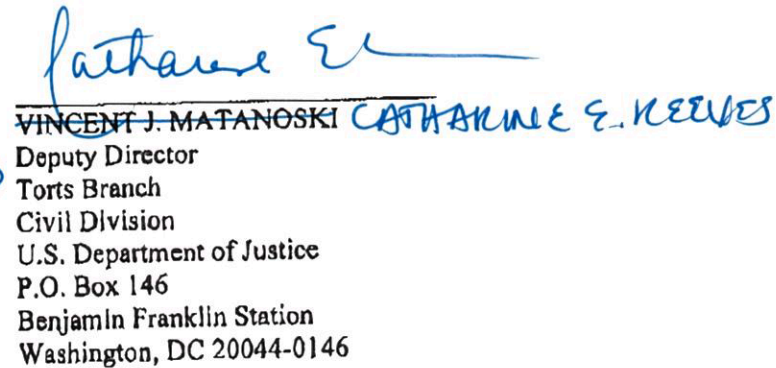 Catharine E
VINCENT J. MATANOSKI CATHARINE E. REEVES
Deputy Director
Torts Branch
Civil Division
U.S. Department of Justice
P.O. Box 146
Benjamin Franklin Station
Washington, DC 20044-0146